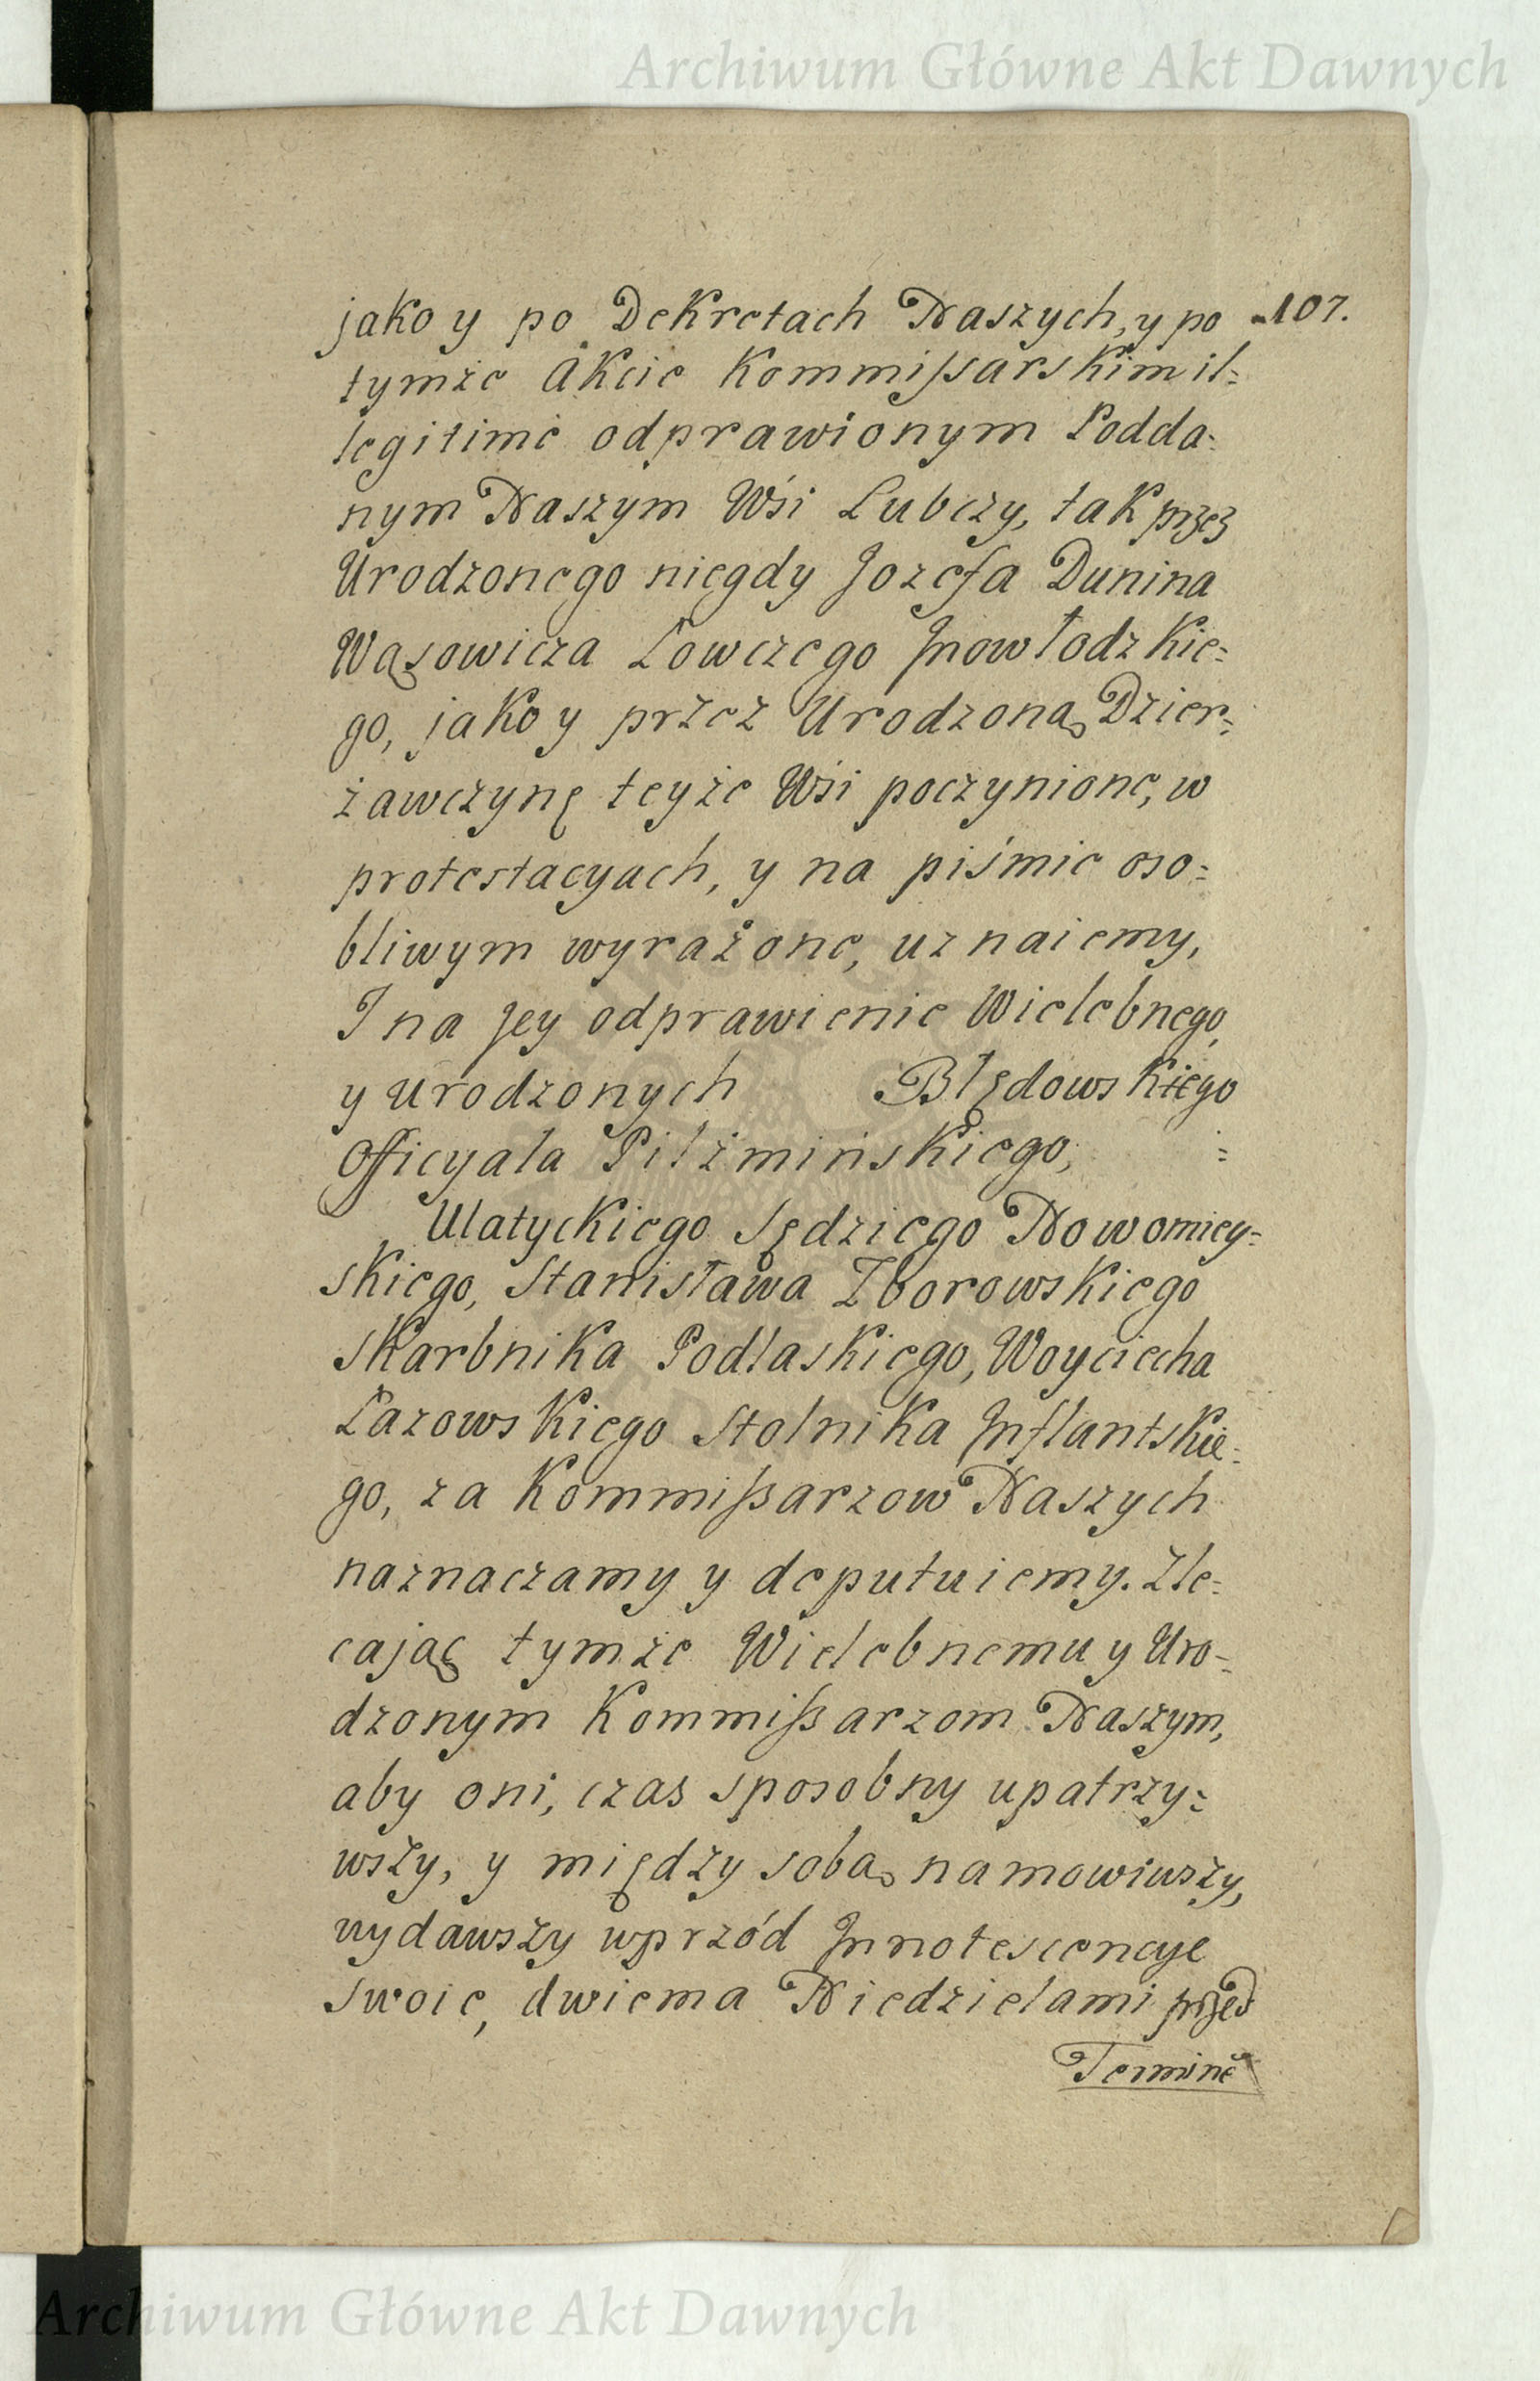 Archiwum Główne Akt Dawnych
jako y po Dekretach Naszych, y po 107.
tymże Akcie Kommissarskim il=
legitimè odprawionym Podda=
nym Naszym Wśi Lubczy, tak przez
Urodzonego niegdy Jozefa Dunina
Wąsowicza Łowczego Jnowłodzkie=
go, jako y przez Urodzoną Dzier=
żawczynę teyże Wśi poczynione, w
protestacyach, y na piśmie oso=
bliwym wyrażone, uznaiemy,
I na Jey odprawienie Wielebnego,
y Urodzonych Błędowskiego
Officyała Pilźmińskiego, =
Ulatyckiego Sędziego Nowomiey=
skiego, Stanisława Zborowskiego
Skarbnika Podlaskiego, Woyciecha
Łazowskiego Stolnika Jnflantskie=
go, za Kommissarzow Naszych
naznaczamy y deputuiemy. Zle=
cając tymże Wielebnemu y Uro=
dzonym Kommissarzom Naszym,
aby oni, czas sposobny upatrzy=
wszy, y między sobą namowiwszy,
wydawszy wprzód Jnnotescencye
swoie, dwiema Niedzielami przed
Terminē
Archiwum Główne Akt Dawnych